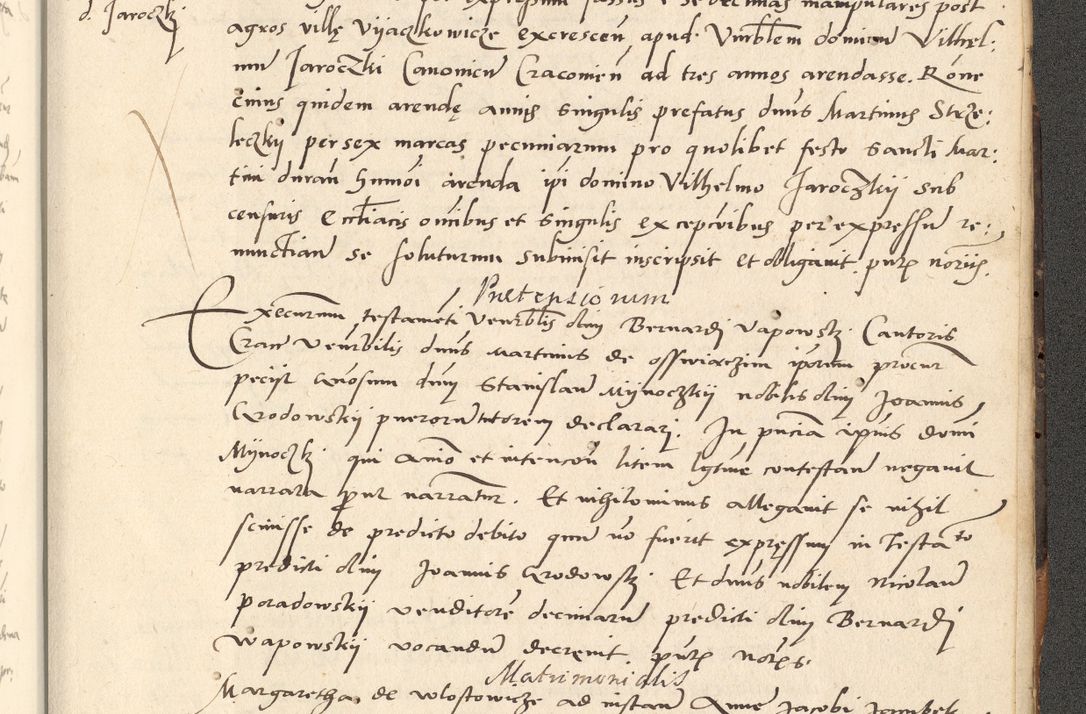 d. Jaroczkj
agros villę Vÿaczkowicze excrescen apud Venrblem dominum Vilhel:
mum Jaroczki Canonicum Cracovien ad tres annos arendasse. Rone
cuius quidem arendę annis singulis prefatus dnus Martinus Strze:
leczkÿ per sex marcas pecuniarum pro quolibet festo Sancti Mar:
tini duran hmoi arenda ipi domino Vilhelmo Jaroczkÿ sub
censuris Ecctiacis omibus et singulis exceptoibus per expressum re:
nunctian se soluturum submisit inscripsit et obligavit. pntt noriis.
Pretensionum
Executorum testameti Venrblis olim Bernardj Vapowskj Cantoris
Cracovien Venrbilis dnus Martinus de osswiaczim iporum procur
pecijt Gnosum dnm Stanislaum Mÿnoczkÿ nobilis olim Joannis
Grodowskÿ puerorum tutorem declararj. In pncia ipius domi
Mÿnoczkj qui animo et intencon litem lgtme contestan negavit
narrata prout narrantur. Et nihilominus allegavit se nihil
scivisse de predicto debito quum no fuerit expręssum in Testato
predicti olim Joannis Grodowskj. Et dnus nobilem Nicolaum
Poradowskÿ venditorem decimarum predicti olim Bernardj
Wapowskÿ vocandum decrevit. pntt notis.
Matrimonialis
Margaretha de Wlostowicze ad instan Anne Jacobi